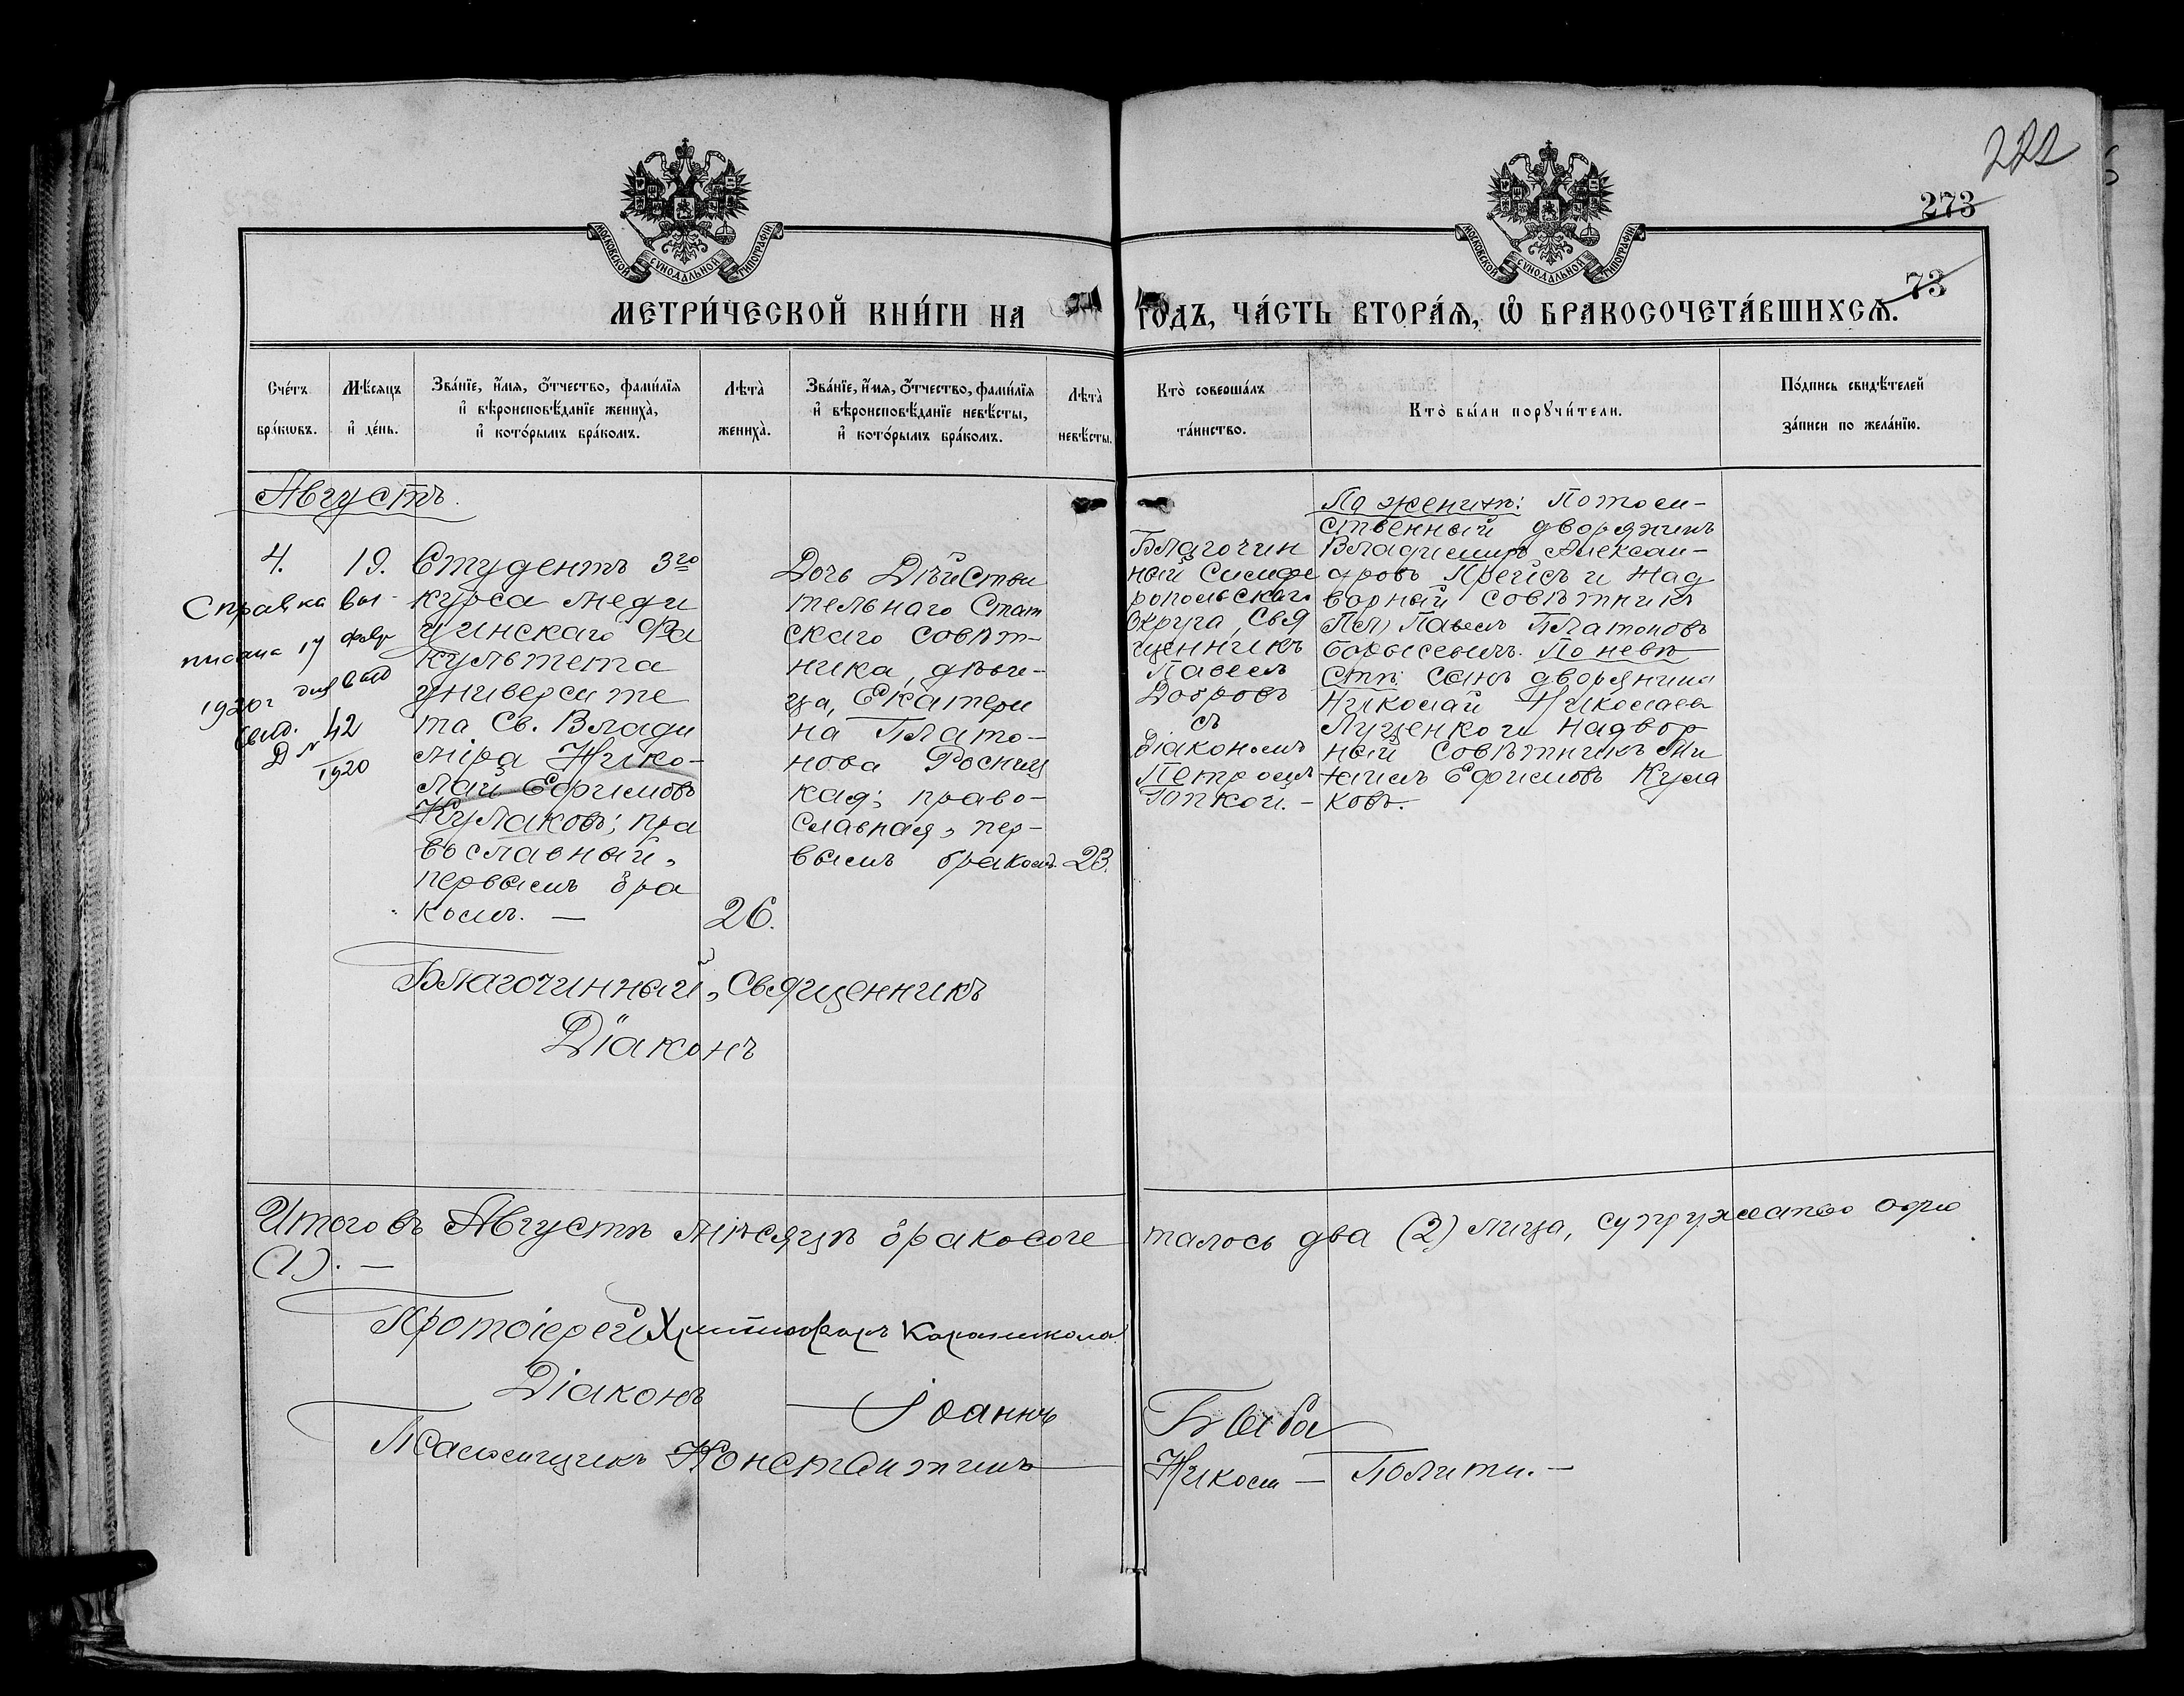 222
273
73
МОСКОВСКОЙ СѴНОДАЛЬНОЙ ТИПОГРАФІИ
МОСКОВСКОЙ СѴНОДАЛЬНОЙ ТИПОГРАФІИ
МЕТРИ́ЧЕСКОЙ КНИ́ГИ НА
ГОДЪ, ЧА́СТЬ ВТОРА́Ѧ, Ѡ҆ БРАКОСОЧЕТА́ВШИХСѦ.
Сче́тъ
бра́кѡвъ.
Мѣ́сѧцъ
и҆ де́нь.
Зва́нїе, и҆́мѧ, о҆́тчество, фами́лїѧ
и҆ вѣроисповѣ́данїе жениха̀,
и҆ кото́рымъ бра́комъ.
Лѣта̀
жениха̀.
Зва́нїе, и҆́мѧ, о҆́тчество, фами́лїѧ
и҆ вѣроисповѣ́данїе невѣ́сты,
и҆ кото́рымъ бра́комъ.
Лѣта̀
невѣ́сты.
Кто̀ соверша́лъ
та́инство.
Кто̀ бы́ли порꙋчи́тели.
По́дпись свидѣ́телей
за́писи по жела́нїю.
Августъ.
4.
19.
Справка вы-
писана 17 февр
1920г для выд
свид.
Д № 42
1920
Студентъ 3го
курса меди
цинскаго Фа
культета
университе
та Св. Влади
міра Нико-
лай Ефимовъ
Кулаковъ; пра
вославный,
первымъ бра
комъ. —
26.
Дочь Дѣйстви
тельнаго Стат
скаго Совѣт-
ника, дѣви-
ца, Екатери
на Плато-
нова Росниц
кая; право-
славная, пер-
вымъ бракомъ.
23.
Благочин
ный Симфе
ропольскаго
Округа, Свя
щенникъ
Павелъ
Добровъ
съ
діакономъ
Петромъ
Попкой. —
По женихѣ: Потом-
ственный дворянинъ
Владиміръ Алексан-
дровъ Прейсъ и Над
ворный Совѣтникъ
Павелъ Платоновъ
Борисевичъ. По невѣ
стѣ: Сынъ дворянина
Николай Николаевъ
Луценко и Надвор
ный Совѣтникъ Ми
хаилъ Ефимовъ Кула
ковъ.
Благочинный, Священникъ
Діаконъ
Итого въ Августѣ мѣсяцѣ бракосоче
талось два (2) лица, супружество одно
(1). —
Протоіерей Христофоръ Караникола
Діаконъ Іоаннъ
Быба
Псаломщикъ Константинъ
Николи — Полити. —